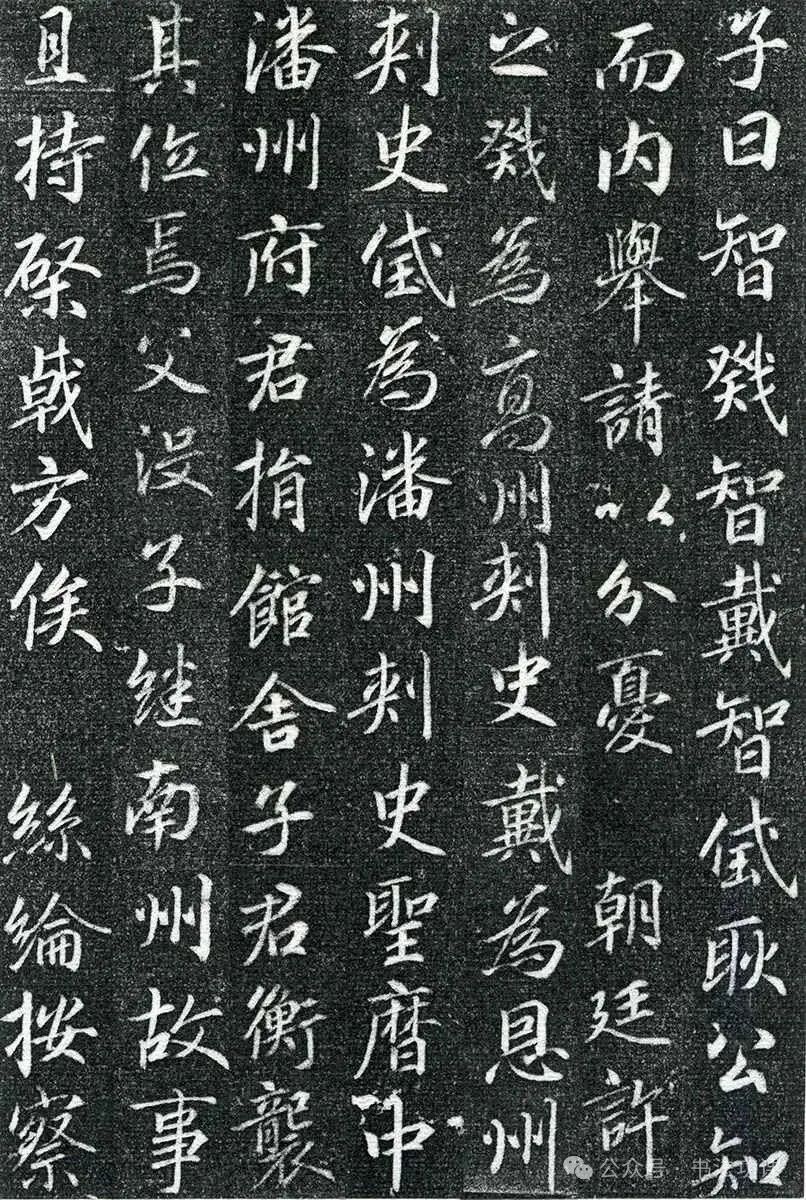 子曰智戣智戴智玳耿公知
而内舉請以分憂 朝廷許
之戣為高州刺史戴為恩州
刺史玳為潘州刺史聖曆中
潘州府君捐館舍子君衡襲
其位焉父没子继南州故事
且持棨戟方俟 絲綸按察
公众号 · 书法